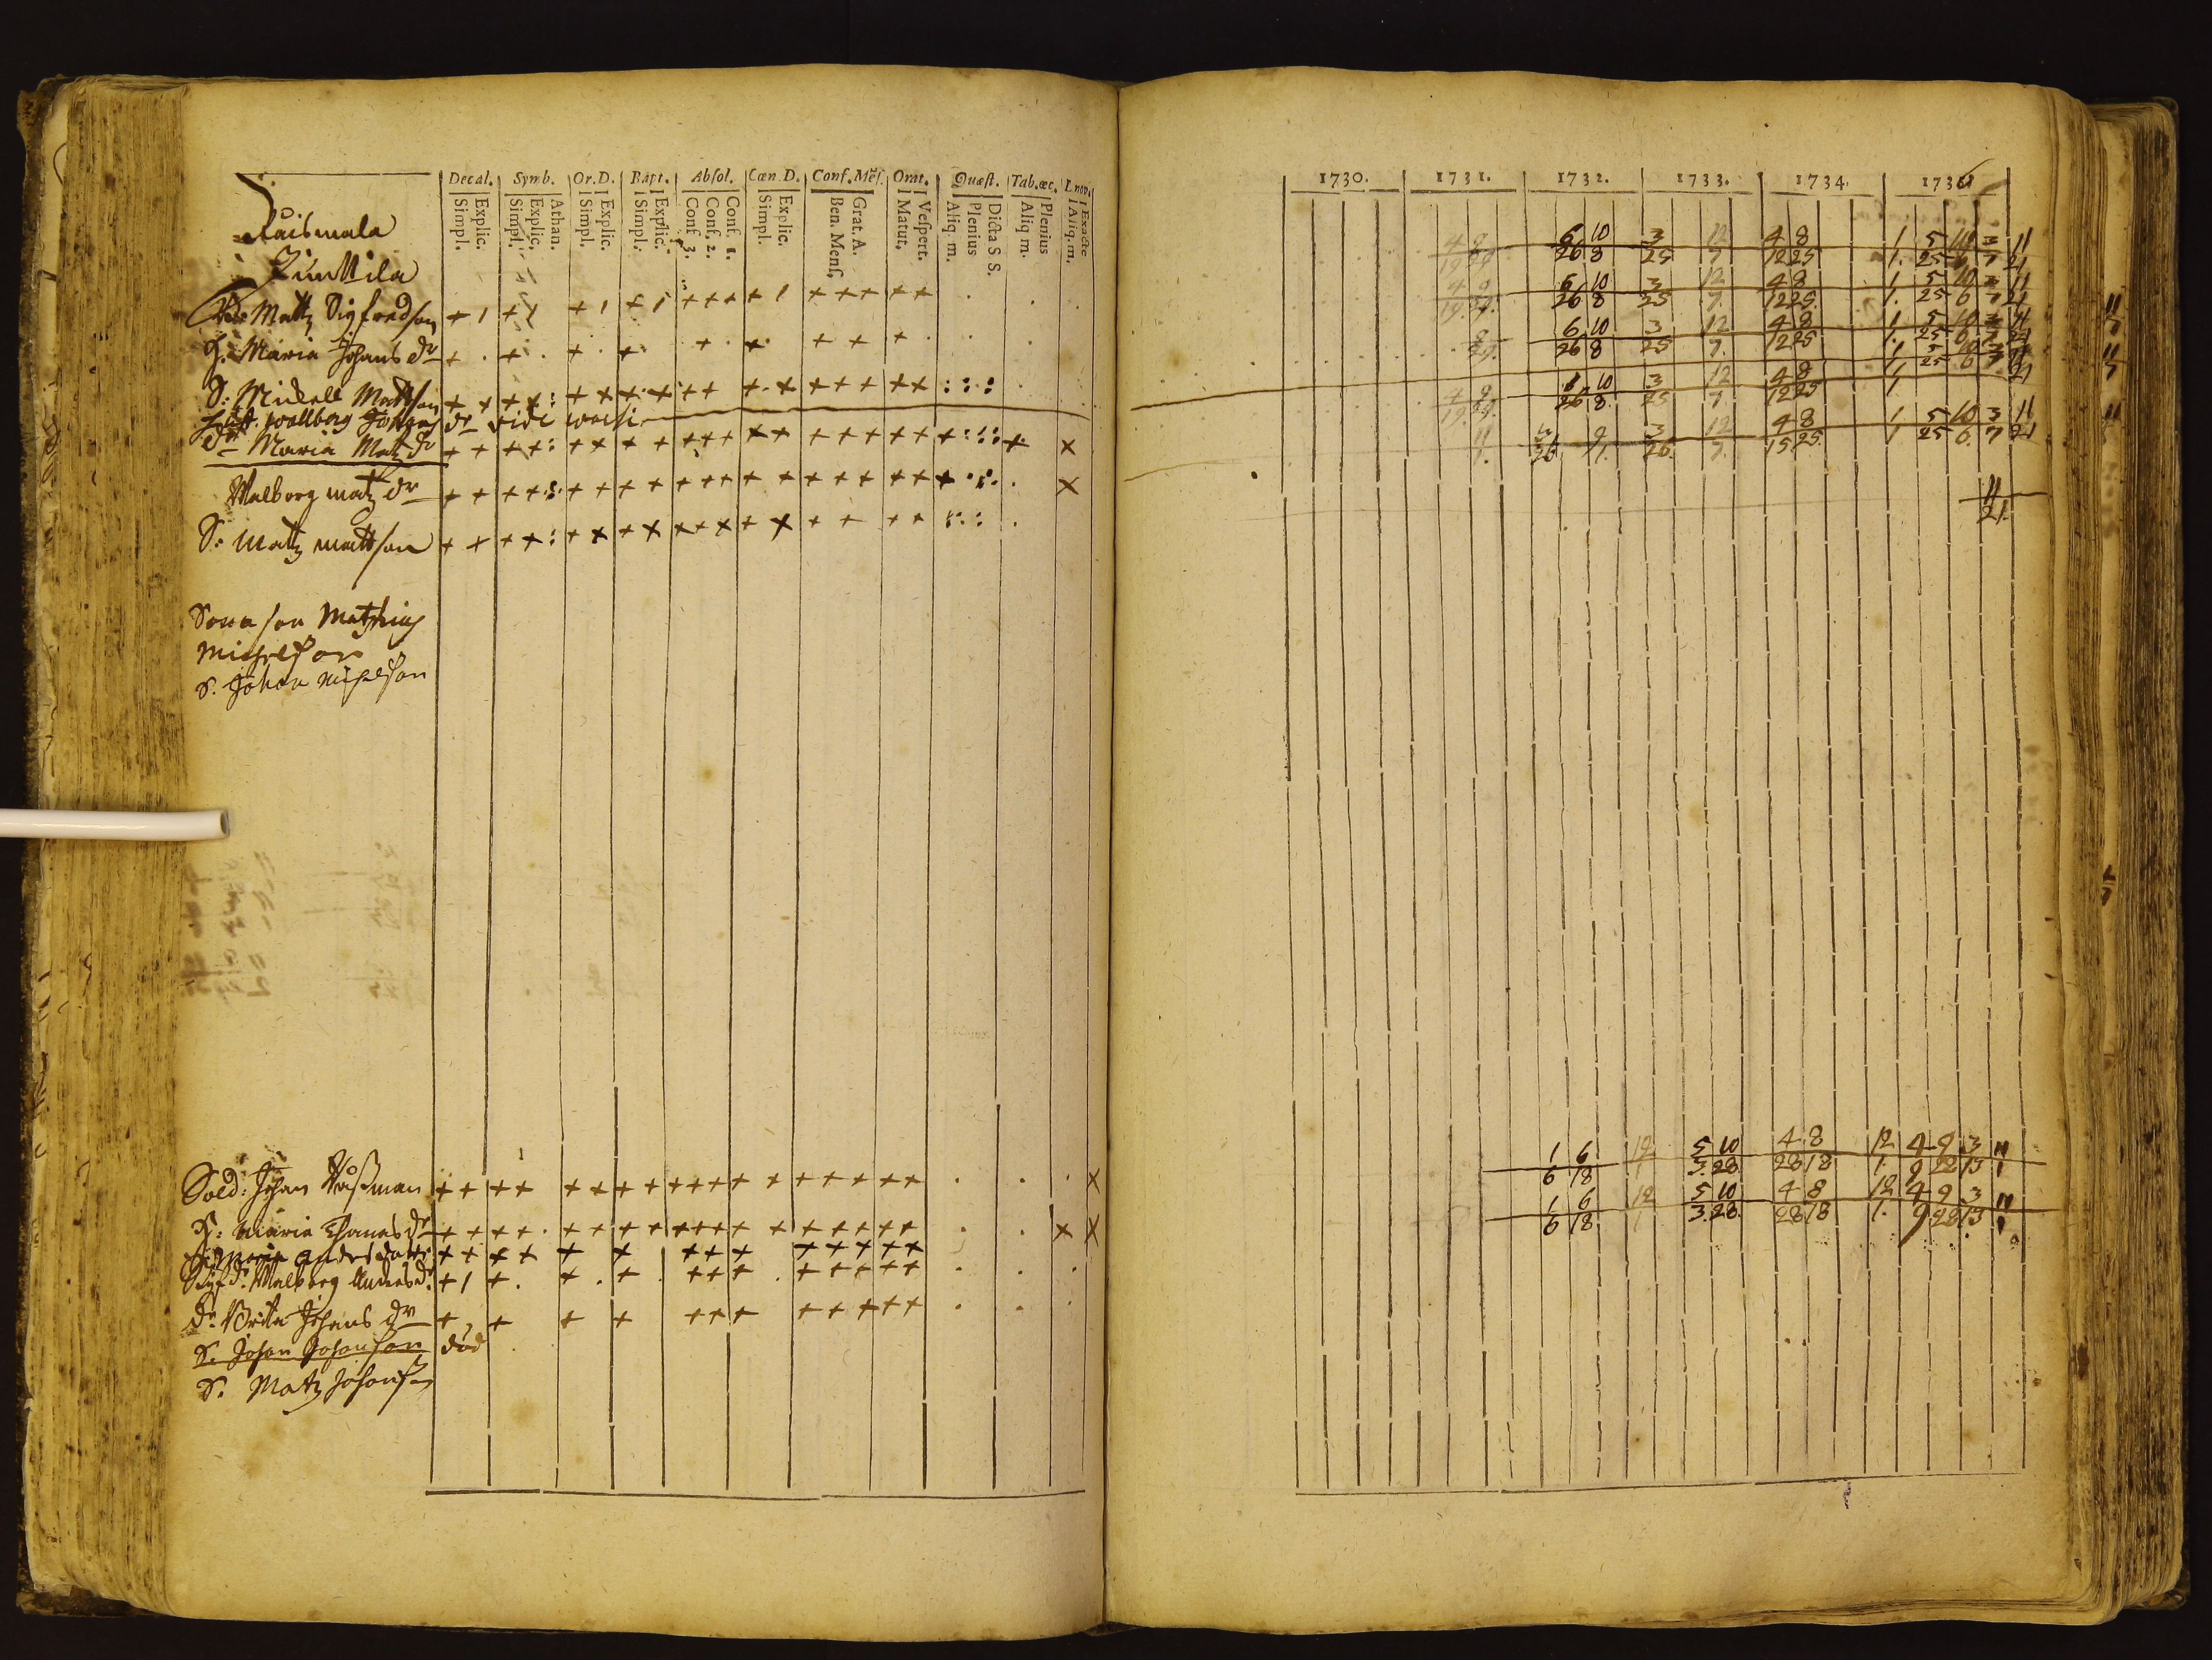 Decal. Symb. Or.D. Bapt. Absol. Cœn.D. Conf.Mẽs. Orat. Quæst. Tab.œc. L nov.
Simpl. Explic. Simpl. Explic. Athan. Simpl. Explic. Simpl. Explic. Conf. 3. Conf. 2. Conf. 1. Simpl. Explic. Ben. Mens. Grat. A. Matut. Vespert. Aliq. m. Plenius Dicta S S. Aliq m. Plenius Aliq. m. Exacte
Raismala
Junttila
Matz Sigfredson + 1 + + + 1 + 1 + + + + 1 + + + + +
H: Maria Johans dr + . + . + . + . + . + . + + + .
S: Mickell Mattson + + + + : + + + + + + + + + + + + +
wallborg Johans dr vide
dr Maria Matz dr + + + + : + + + + + + + + + + + + + + + + + x
Walborg matz dr + + + + + + + + + + + + + + + + + + + x
S: Matz mattson + + + + : + + + + + + + + + + + + +
Sona son Mathias
Michelson
S. Johan Michelson
Sold: Johan Råsman + + + + + + + + + + + + + + + + + + + x
H: Maria Thomas dr + + + + . + + + + + + + + + + + + + + x x
Maria Anders dotter + + + + + + + + + + + + + +
Walborg Anders dr + 1 + . + . + . + + + . + + + + +
dr Brita Johans dr + , + + + + + + + + + + +
S. Johan Johanson död
S. Matz Johanson
1730. 1731. 1732. 1733. 1734. 1735
4 9 6 10 3 12 4 8 1 5 10 3 11
19 29 26 8 25 7 12 25 1. 25 6 7 21
4 9 6 10 3 12 4 8 1 5 10 3 11
19. 29. 26 8 25 7. 12 25. 1. 25 6 7 21
9 6 10 3 12 4 8 1 5 10 3 11
29. 26 8 25 7. 12 25 1. 25 6 7 21
1 5 10 3 11
25 6 7 21
4 9 6 10 3 12 4 8 1
19. 29. 26 8. 25 7 12 25 1
11 3 9 3 12 4 8 1 5 10 3 11
1. 26 7. 26. 7. 15 25. 1 25 6. 7 21
11
21.
1 6 12 5 10 4 8 12 4 9 3 11
6 18 1 3. 28 28 18 1. 9 28 13 1
1 6 12 5 10 4 8 12 4 9 3 11
6 18 1 3. 28. 28 18 1. 9 28 13 1